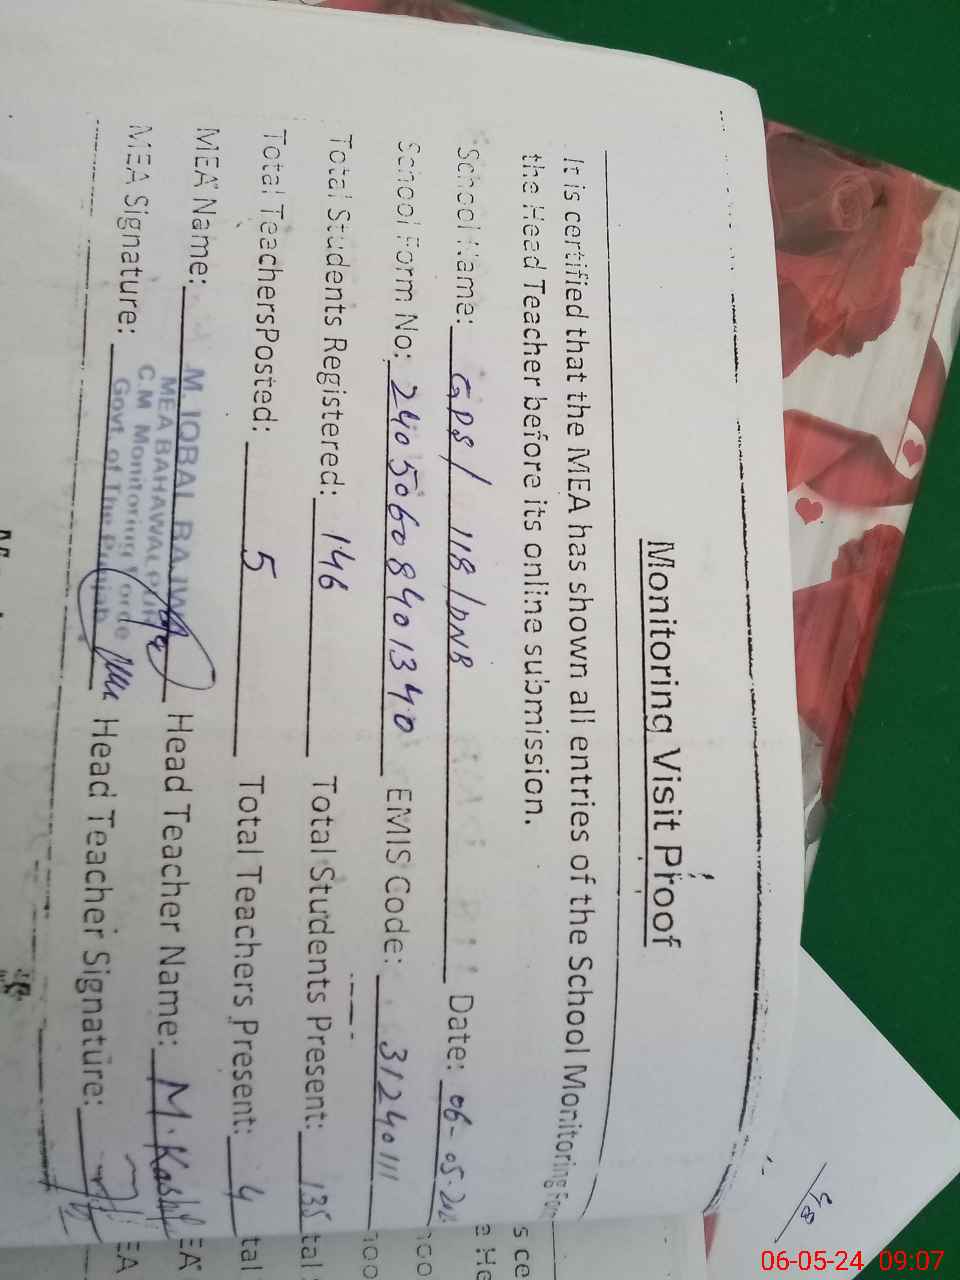 Monitoring Visit Proof
It is certified that the MEA has shown all entries of the School Monitoring Form
the Head Teacher before its online submission.
School Name: GPS / 118/DNB Date: 06-05-202
School Form No: 24050608401340 EMIS Code: 31240111
Total Students Registered: 146 Total Students Present: 135
Total TeachersPosted: 5 Total Teachers Present: 4
MEA Name: Head Teacher Name: M. Kashif
M. IQBAL BAJWA
MEA BAHAWALPUR
C.M Monitoring Force
Govt. of The Punjab
MEA Signature: Head Teacher Signature:
s ce
e He
hoo
hoo
tal
tal
EA
EA
06-05-24 09:07